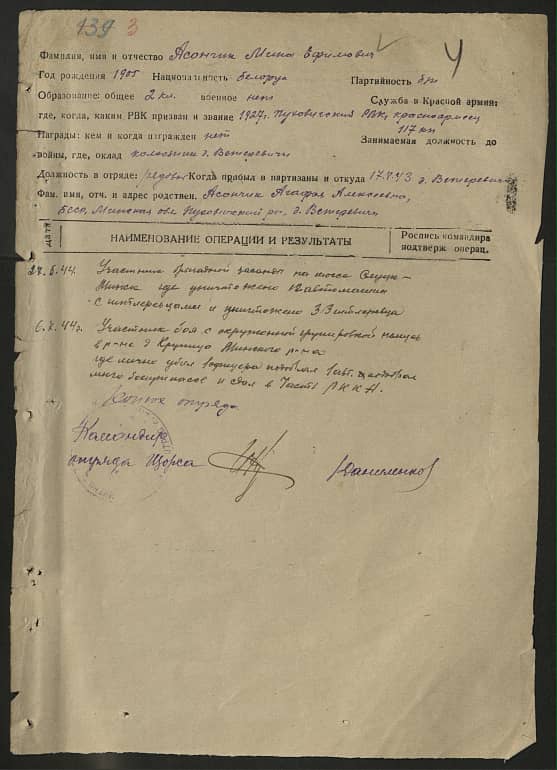 139 3
Фамилия, имя и отчество Асончик Мина Ефимович
Год рождения 1905 Национальность белорус Партийность б/п
Образование: общее 2 кл. военное нет Служба в Красной армии:
где, когда, каким РВК призван и звание 1927г. Пуховичский РВК, красноармеец
117 кп
Награды: кем и когда награжден нет Занимаемая должность до
войны, где, оклад колхозник д. Ветеревичи
Должность в отряде: рядовой Когда прибыл в партизаны и откуда 17.8.43 д. Ветеревичи
Фам. имя, отч. и адрес родствен. Асончик Агафья Алексеевна,
БССР, Минская обл. Пуховичский рн, д. Ветеревичи
ДАТА НАИМЕНОВАНИЕ ОПЕРАЦИИ И РЕЗУЛЬТАТЫ Роспись командира
подтверж операц.
Участник засады на шоссе Слуцк-
Минск где уничтожено 12 автомашин
с гитлеровцами и уничтожено 33 гитлеровца
6.7.44г. Участник боя с окруженной группировкой немцев
в р-не д Крупица Минского р-на
где лично убил
много боеприпасов и сдал в часть РККА.
отряда
Командир
отряда Щорса Даниленков